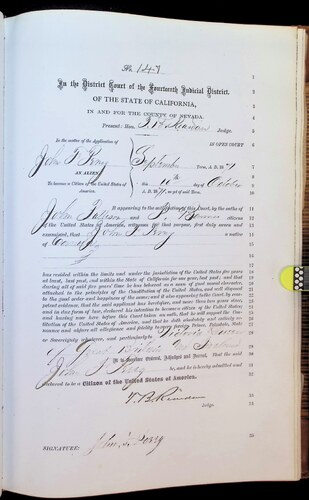 No. 147
In the District Court of the Fourteenth Judicial District,
OF THE STATE OF CALIFORNIA,
IN AND FOR THE COUNTY OF NEVADA.
Present: Hon. Judge.
In the matter of the Application of
IN OPEN COURT
John
September Term, A. D. 1871
AN ALIEN,
this day of October
To become a Citizen of the United States of America.
A. D. 1871
It appearing to the satisfaction of this Court, by the oaths of
John and citizens
of the United States of America, witnesses for that purpose, first duly sworn and
examined, that John a native
of
has resided within the limits and under the jurisdiction of the United States five years
at least, last past, and within the State of California for one year, last past; and that
during all of said five years' time he has behaved as a man of good moral character,
attached to the principles of the Constitution of the United States, and well disposed
to the good order and happiness of the same; and it also appearing to the Court, by competent
evidence, that the said applicant has heretofore, and more than two years since,
and in due form of law, declared his intention to become a citizen of the United States;
and having now here before this Court taken an oath, that he will support the Constitution
of the United States of America, and that he doth absolutely and entirely renounce
and abjure all allegiance and fidelity to every foreign Prince, Potentate, State
or Sovereignty whatever, and particularly to Victoria Queen
of Great Britain and Ireland
It is therefore Ordered, Adjudged and Decreed, that the said
John be, and he is hereby admitted and
declared to be a Citizen of the United States of America.
T. B. Reardan
Judge.
SIGNATURE: John